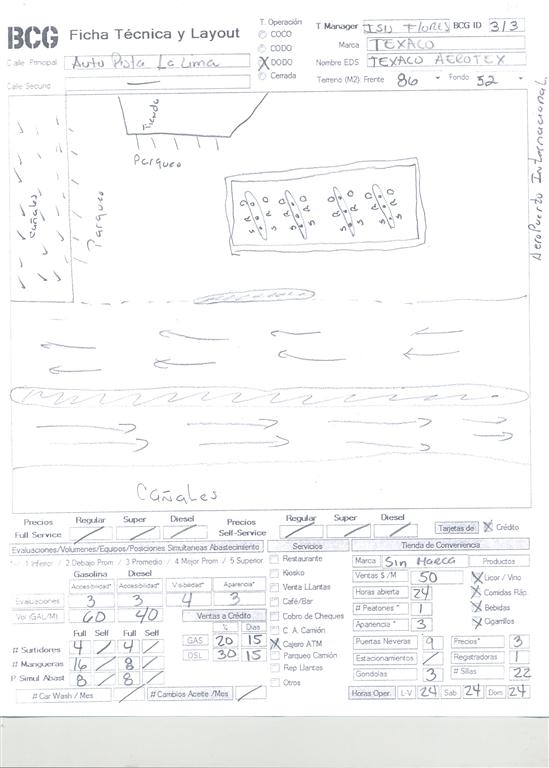 BCG Ficha Técnica y Layout
T. Operación
COCO
CODO
X DODO
Cerrada
T. Manager ISIS FLORES BCG ID 313
Marca TEXACO
Nombre EDS TEXACO AEROTEX
Terreno (M2): Frente 86 Fondo 52
Calle Principal Auto Pista La Lima
Calle Secund. —
Tienda
Parqueo
Cañales
Parqueo
Aeropuerto Internacional
S R D
S R D
S R D
S R D
Cañales
Precios Regular Super Diesel
Full Service / / /
Precios Regular Super Diesel
Self-Service / / /
Tarjetas de X Crédito
Evaluaciones/Volumenes/Equipos/Posiciones Simultaneas Abastecimiento
1 Inferior / 2 Debajo Prom / 3 Promedio / 4 Mejor Prom / 5 Superior
Gasolina Diesel
Accesibilidad* Accesibilidad* Visibilidad* Aparencia*
Evaluaciones 3 3 4 3
Vol (GAL/M) 60 40
Ventas a Crédito
% Dias
GAS 20 15
DSL 30 15
Full Self Full Self
# Surtidores 4 / 4 /
# Mangueras 16 / 8 /
P Simul Abast 8 / 8 /
# Car Wash / Mes / # Cambios Aceite /Mes /
Servicios
Restaurante
Kiosko
Venta LLantas
Café/Bar
Cobro de Cheques
C. A. Camión
X Cajero ATM
Parqueo Camión
Rep Llantas
Otros
Tienda de Conveniencia
Marca Sin Marca Productos
Ventas $ /M 50 X Licor / Vino
Horas abierta 24 X Comidas Ráp.
# Peatones * 1 X Bebidas
Aparencia * 3 X Cigarrillos
Puertas Neveras 9 Precios* 3
Estacionamientos / Registradoras 1
Gondolas 3 # Sillas 22
Horas Oper. L-V 24 Sab 24 Dom 24